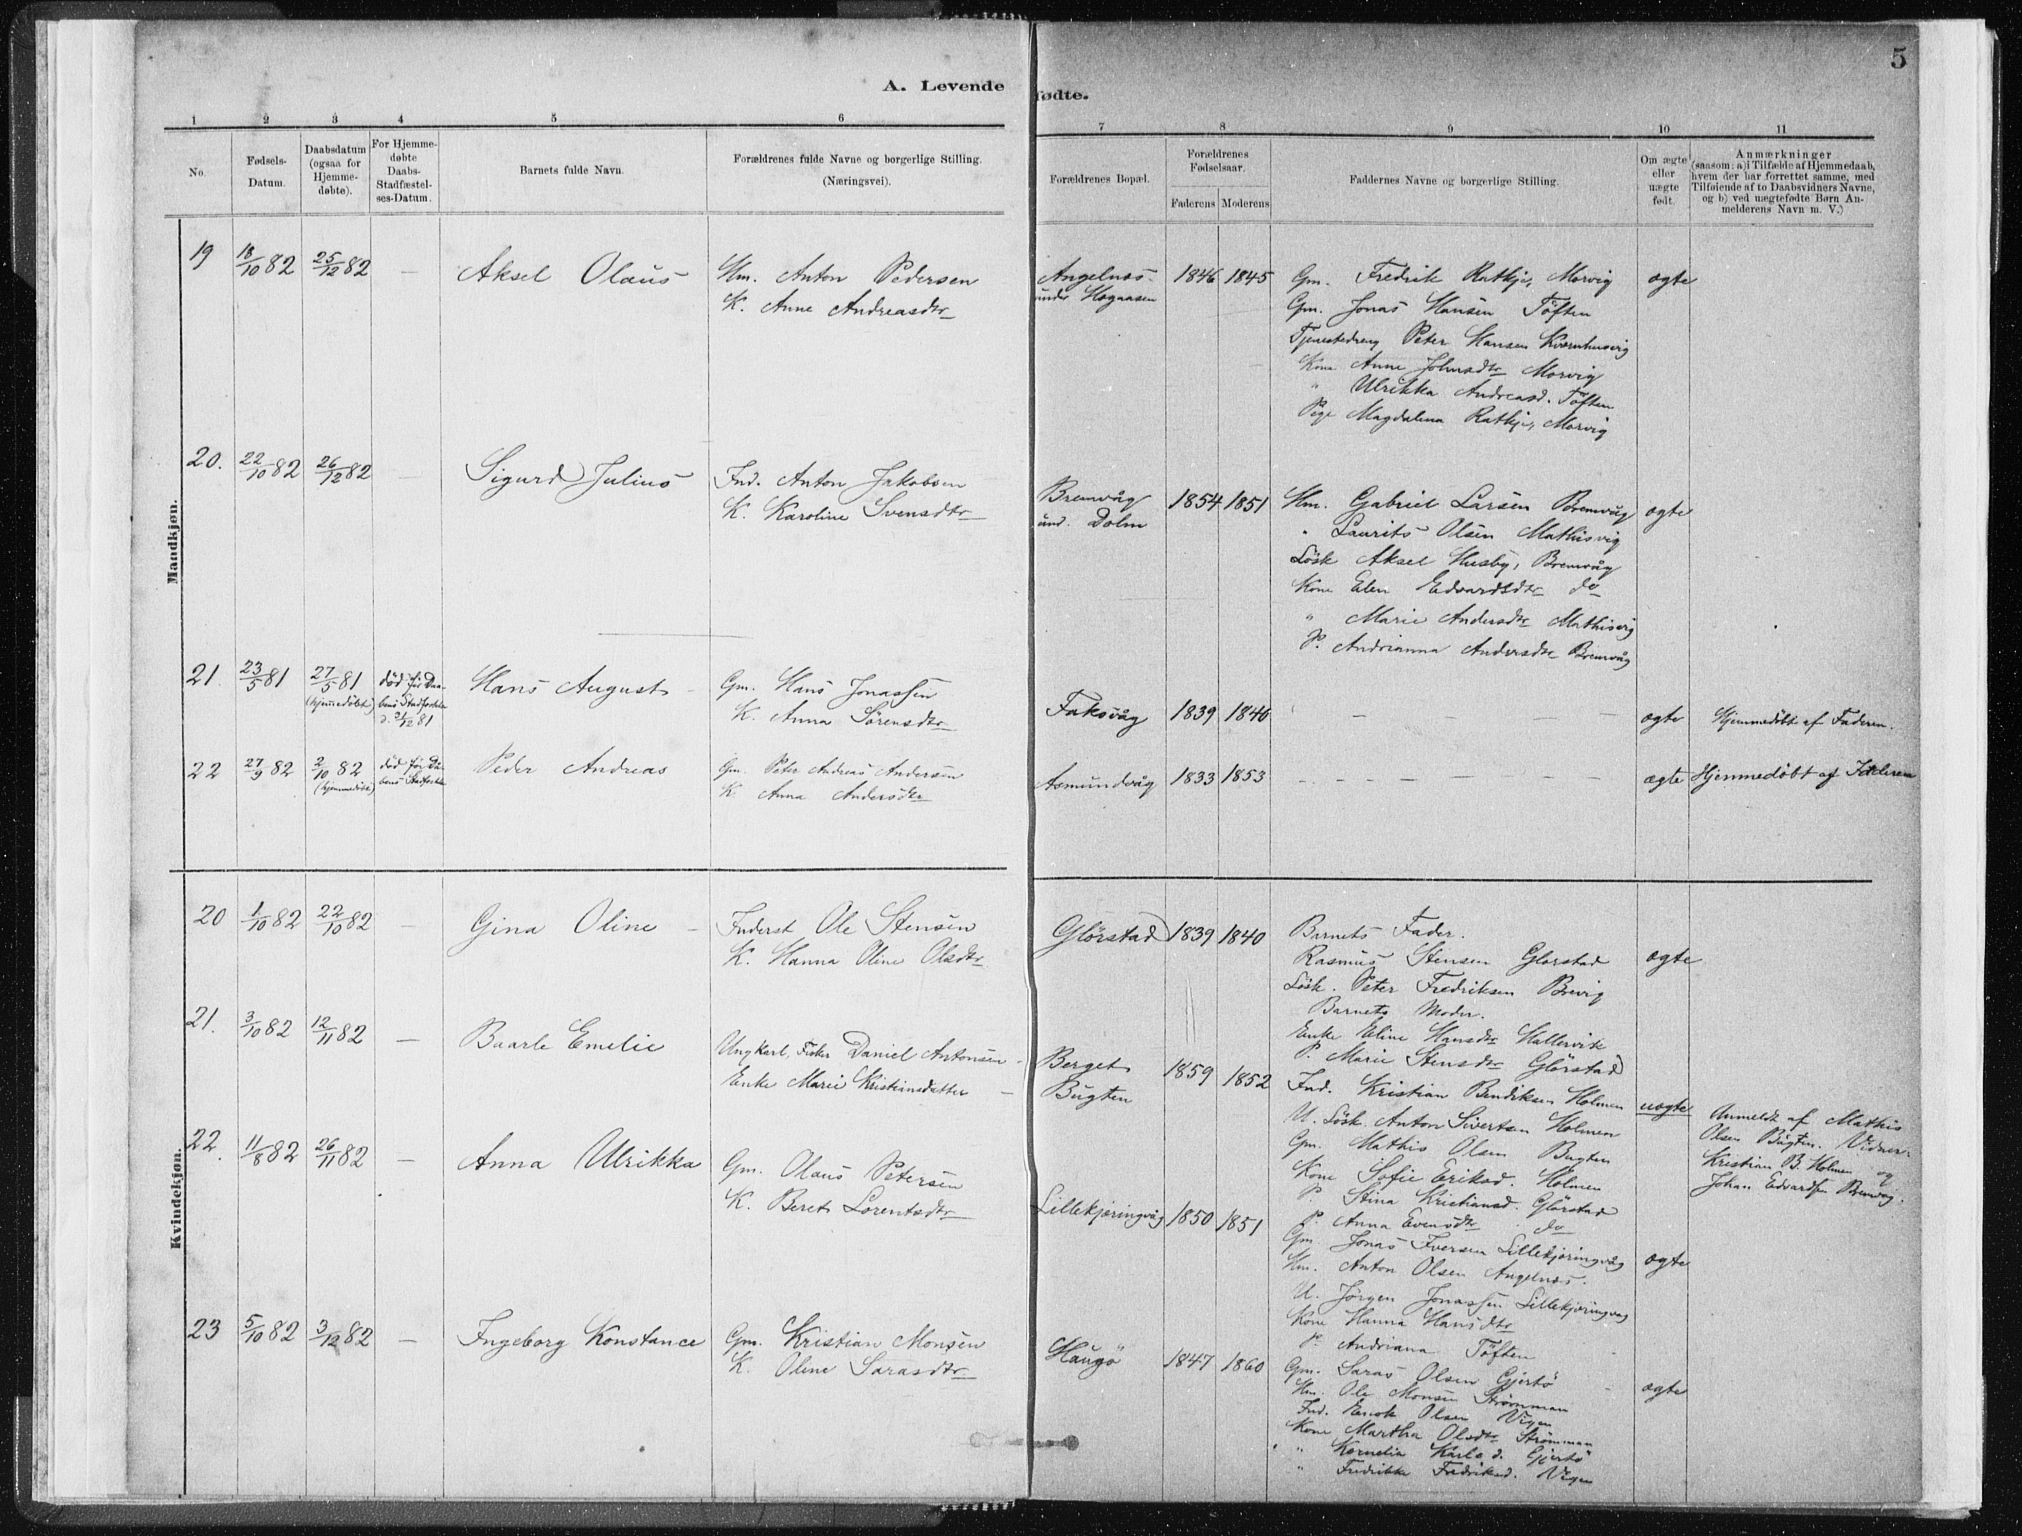 5
A. Levende
fødte.
1 2 3 4 5 6
7 8 9 10 11
No.
Fødsels-
Datum.
Daabsdatum
(ogsaa for
Hjemme-
døbte).
For Hjemme-
døbte
Daabs-
Stadfæstel-
ses-Datum.
Barnets fulde Navn.
Forældrenes fulde Navne og borgerlige Stilling.
(Næringsvei).
Forældrenes Bopæl.
Forældrenes
Fødselsaar.
Faderens Moderens
Faddernes Navne og borgerlige Stilling.
Om ægte
eller
uægte
født.
Anmærkninger
(saasom: a) i Tilfælde af Hjemmedaab,
hvem der har forrettet samme, med
Tilføiende af to Daabsvidners Navne,
og b) ved uægtefødte Børn An-
melderens Navn m. V.)
Mandkjøn.
19 18/10 82 25/12 82 — Aksel Olaus
Hm. Anton Pedersen
K. Anne Andreasdtr
Angelnæs
under Hogaasen
1846 1845
Gm. Fredrik Ratkje, Morvig
Gm. Jonas Hansen Töften
Tjenestedreng Peter Hansen Kvernhusvig
Kone Anne Johnsdtr Morvig
" Ulrikka Andreasd. Töften
Pige Magdalena Ratkje, Morvig
ægte
20. 22/10 82 26/12 82 — Sigurd Julius
Ind. Anton Jakobsen
K. Karoline Svensdtr
Bremvåg
und. Dolm
1854 1851
Hm. Gabriel Larsen Bremvåg
" Laurits Olsen Mathisvig
Lösk Aksel Husby, Bremvåg
Kone Elen Edvardsdtr do
" Marie Andersdtr Mathisvig
P. Andrianna Andersdtr Bremvåg
ægte
21. 23/5 81 27/5 81
(hjemmedöbt)
död för Daa-
bens Stadfæstelse
d. 2/12 81
Hans August
Gm. Hans Jonassen
K. Anna Sörensdtr
Faksvåg
1839 1846
— — — — —
ægte
Hjemmedöbt af Faderen.
22 27/9 82 2/10 82
(hjemmedöbt)
död för Då-
bens Stadfæstelse
Peder Andreas
Gm. Peter Andreas Andersen
K. Anna Andersdtr
Asmundvåg
1833 1853
— — — — —
ægte
Hjemmedöbt af
Kvindekjøn.
20 1/10 82 22/10 82 — Gina Oline
Inderst Ole Stensen
K. Hanna Oline Olsdtr
Glörstad
1839 1840
Barnets Fader.
Rasmus Stensen Glorstad
Lösk. Peter Fredriksen Brevig
Barnets Moder.
Enke Eline Hansdtr Hallervik
P. Marie Stensdtr Glörstad
ægte
21. 3/10 82 12/11 82 — Baarle Emelie
Ungkarl, Fisker Daniel Antonsen
Enke Marie Kristiansdatter
Berget
Bugten
1859 1852
Ind. Kristian Bendiksen Holmen
U. Lösk. Anton Sivertsen Holmen
Gm. Mathis Olsen Bugten
Kone Sofie Eriksd. Holmen
P. Stina Kristiansd. Glörstad
P. Anna Evensdtr do
uægte
Anmeldt af Mathis
Olsen Bugten. Vidner:
Kristian B. Holmen og
Johan Edvardsen Bremvåg.
22. 11/8 82 26/11 82 — Anna Ulrikka
Gm. Olaus Petersen
K. Beret Lorentsdtr
Lillekjøringvåg
1850 1851
Gm. Jonas Iversen Lillekjøringvåg
Hm. Anton Olsen Angelnæs.
U. Jörgen Jonassen Lillekjøringvåg
Kone Hanna Hansdtr
P. Andriana Töften
ægte
23 5/10 82 3/12 82 — Ingeborg Konstance
Gm. Kristian Monsen
K. Oline Sarasdtr
Haugö
1847 1860
Gm. Saras Olsen Gjertö
Hm. Ole Monsen Strömman
Ind. Enok Olsen Vegen
Kone Martha Olsdtr Strömman
" Kornelia Karlsd. Gjertö
" Fredrikke Fredriksd. Vegen
ægte